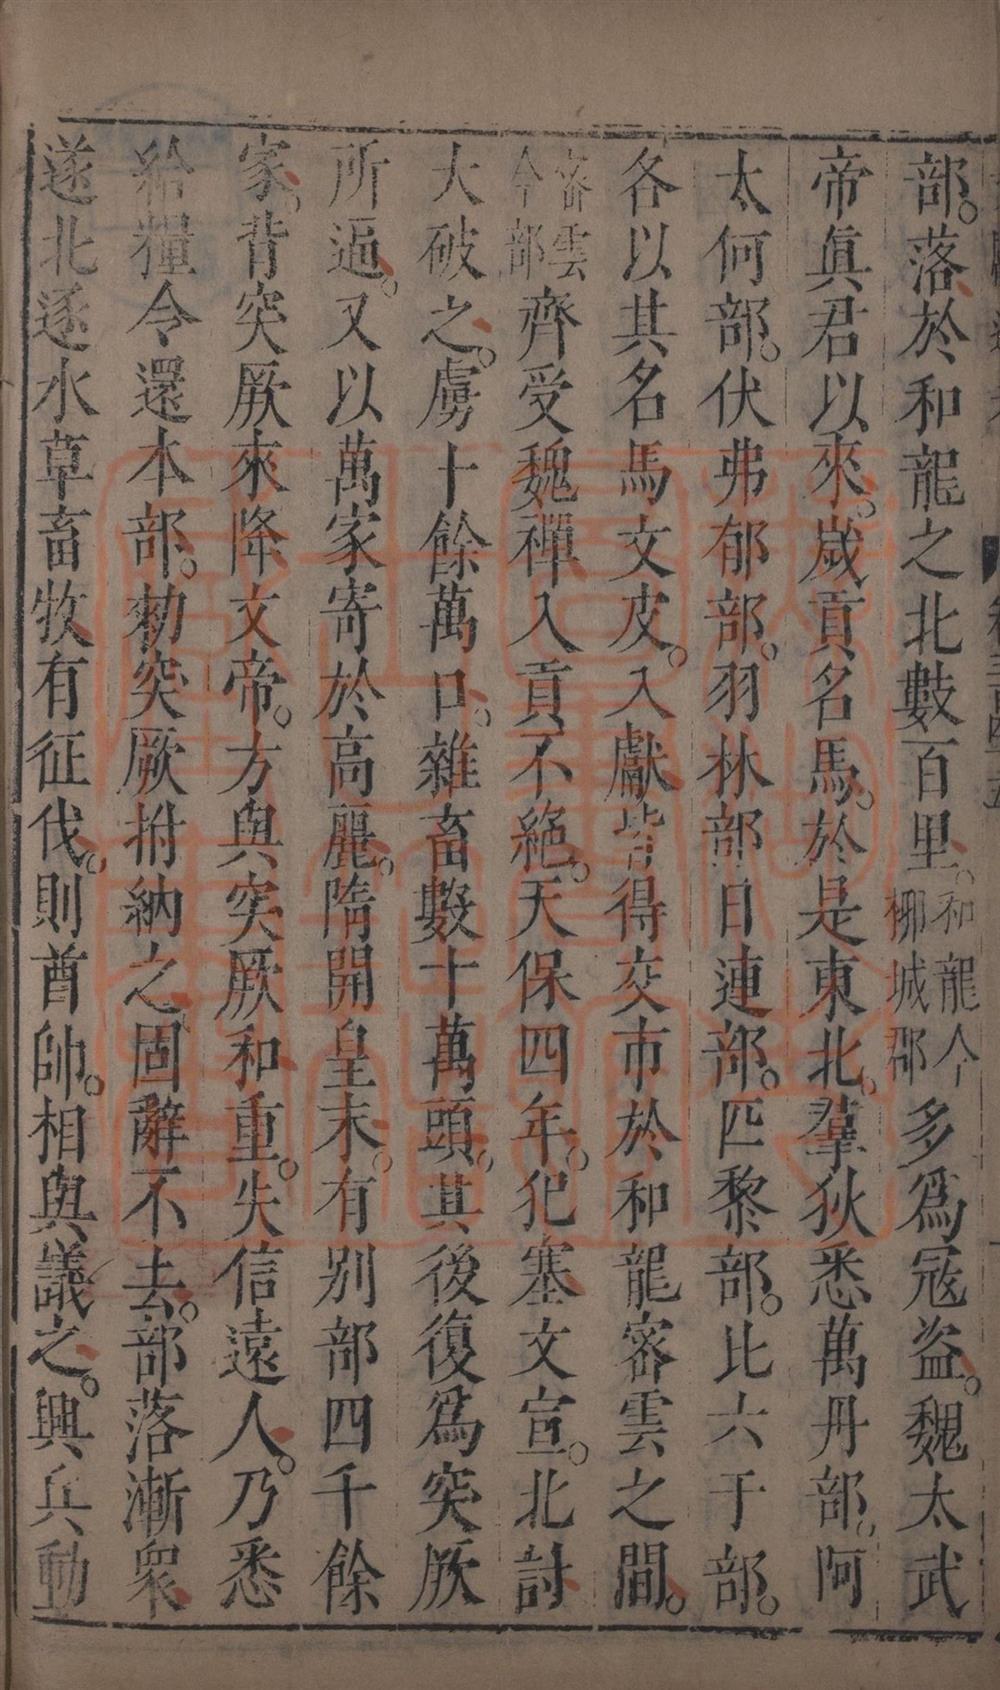 部。落於和龍之北數百里。和龍今柳城郡多爲冦盗。魏太武
帝眞君以來。歲貢名馬。於是東北。羣狄悉萬丹部。阿
太何部。伏弗郁部。羽林部日連部。匹黎部。比六于部。
各以其名馬文皮。入獻皆得交市於和龍宻雲之間。
宻雲今郡齊受魏禪入貢不絶。天保四年。犯塞文宣。北討
大破之。虜十餘萬口。雜畜數十萬頭。其後復爲突厥
所逼。又以萬家寄於高麗。隋開皇末。有别部四千餘
家。背突厥來降文帝。方與突厥和重。失信遠人。乃悉
給糧令還本部。勑突厥拊納之固辭不去。部落漸衆
遂北逐水草畜牧有征伐。則酋帥。相與議之。興兵動